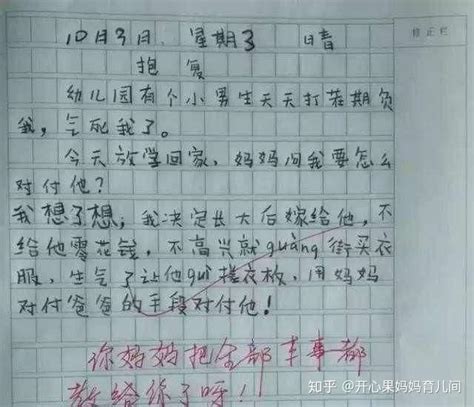 10月3日 星期3 晴
修正栏
抱复
幼儿园有个小男生天天打若期负
我,气死我了。
今天放学回家,妈妈问我要怎么
对付他?
我想了想,我决定长大后嫁给他,不
给他零花钱,不高兴就guàng街买衣
服,生气了让他guì搓衣板,用妈妈
对付爸爸的手段对付他!
你妈妈把全部本事都
教给你了呀!
知乎 @开心果妈妈育儿间